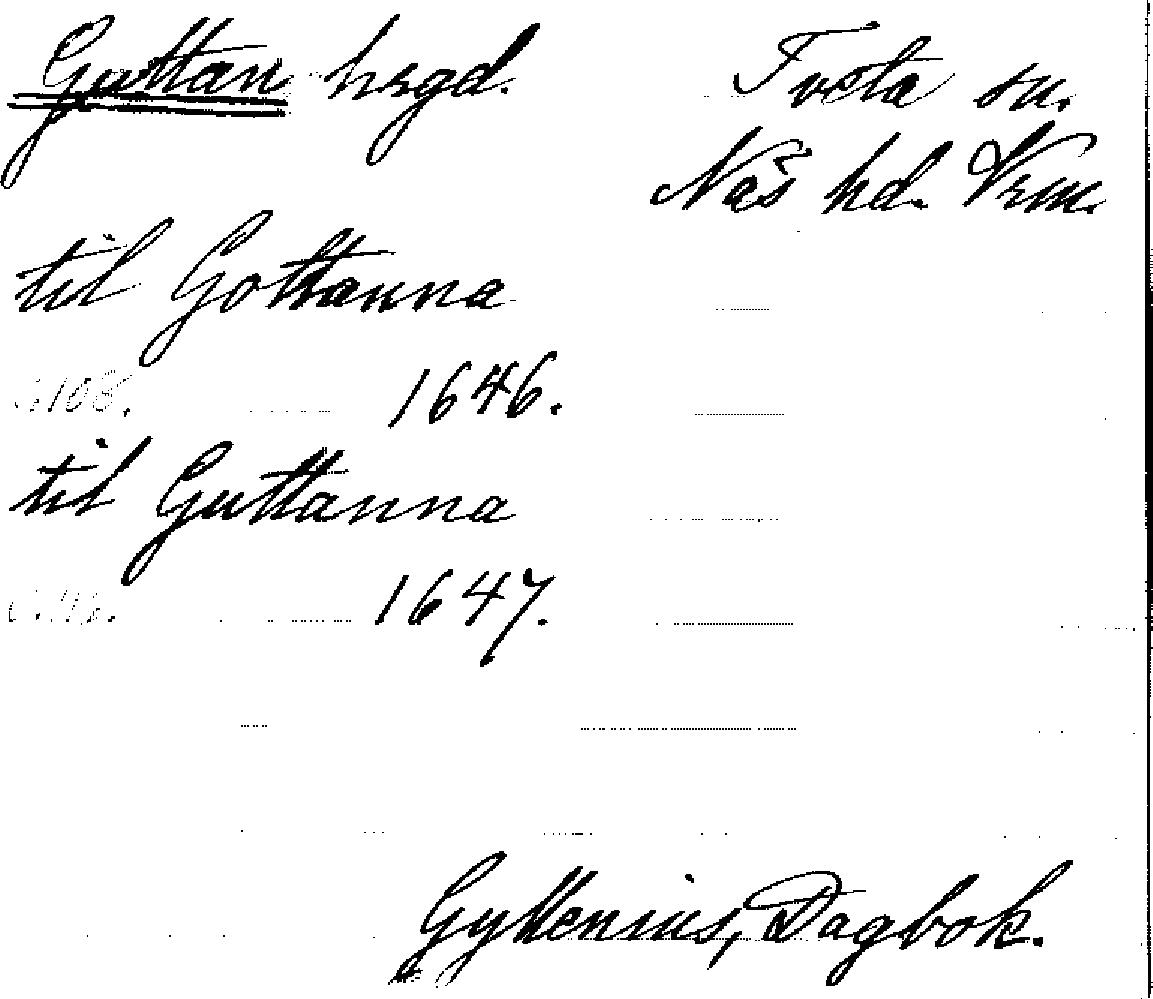 Guttan hrgd.
Tveta sn.
Näs hd. Vrm.
til Gottanna
s.108. 1646.
til Guttanna
1647.
Gyllenius, Dagbok.